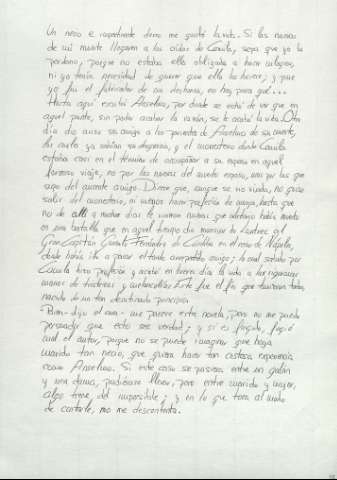 Un necio e impertinente deseo me quitó la vida. Si las nuevas
de mi muerte llegaren a los oídos de Camila, sepa que yo la
perdono, porque no estaba ella obligada a hacer milagros,
ni yo tenía necesidad de querer que ella los hiciese; y pues
yo fui el fabricador de mi deshonra, no hay para qué...
Hasta aquí escribió Anselmo, por donde se echó de ver que en
aquel punto, sin poder acabar la razón, se le acabó la vida. Otro
día dio aviso su amigo a los parientes de Anselmo de su muerte,
los cuales ya sabían su desgracia, y el monasterio donde Camila
estaba casi en el término de acompañar a su esposo en aquel
forzoso viaje, no por las nuevas del muerto esposo, mas por las que
supo del ausente amigo. Dícese que, aunque se vio viuda, no quiso
salir del monasterio, ni menos hacer profesión de monja, hasta que
no de allí a muchos días le vinieron nuevas que Lotario había muerto
en una batalla que en aquel tiempo dio monsiur de Lautrec al
Gran Capitán Gonzalo Fernández de Córdoba en el reino de Nápoles,
donde había ido a parar el tarde arrepentido amigo; lo cual sabido por
Camila hizo profesión y acabó en breves días la vida a las rigurosas
manos de tristezas y melancolías. Este fue el fin que tuvieron todos,
nacido de un tan desatinado principio.
Bien- dijo el cura - me parece esta novela, pero no me puedo
persuadir que esto sea verdad; y si es fingido, fingió
mal el autor, porque no se puede imaginar que haya
marido tan necio, que quiera hacer tan costosa experiencia
como Anselmo. Si este caso se pusiera entre un galán
y una dama, pudiérase llevar, pero entre marido y mujer,
algo tiene del imposible; y en lo que toca al modo
de contarle, no me descontenta.